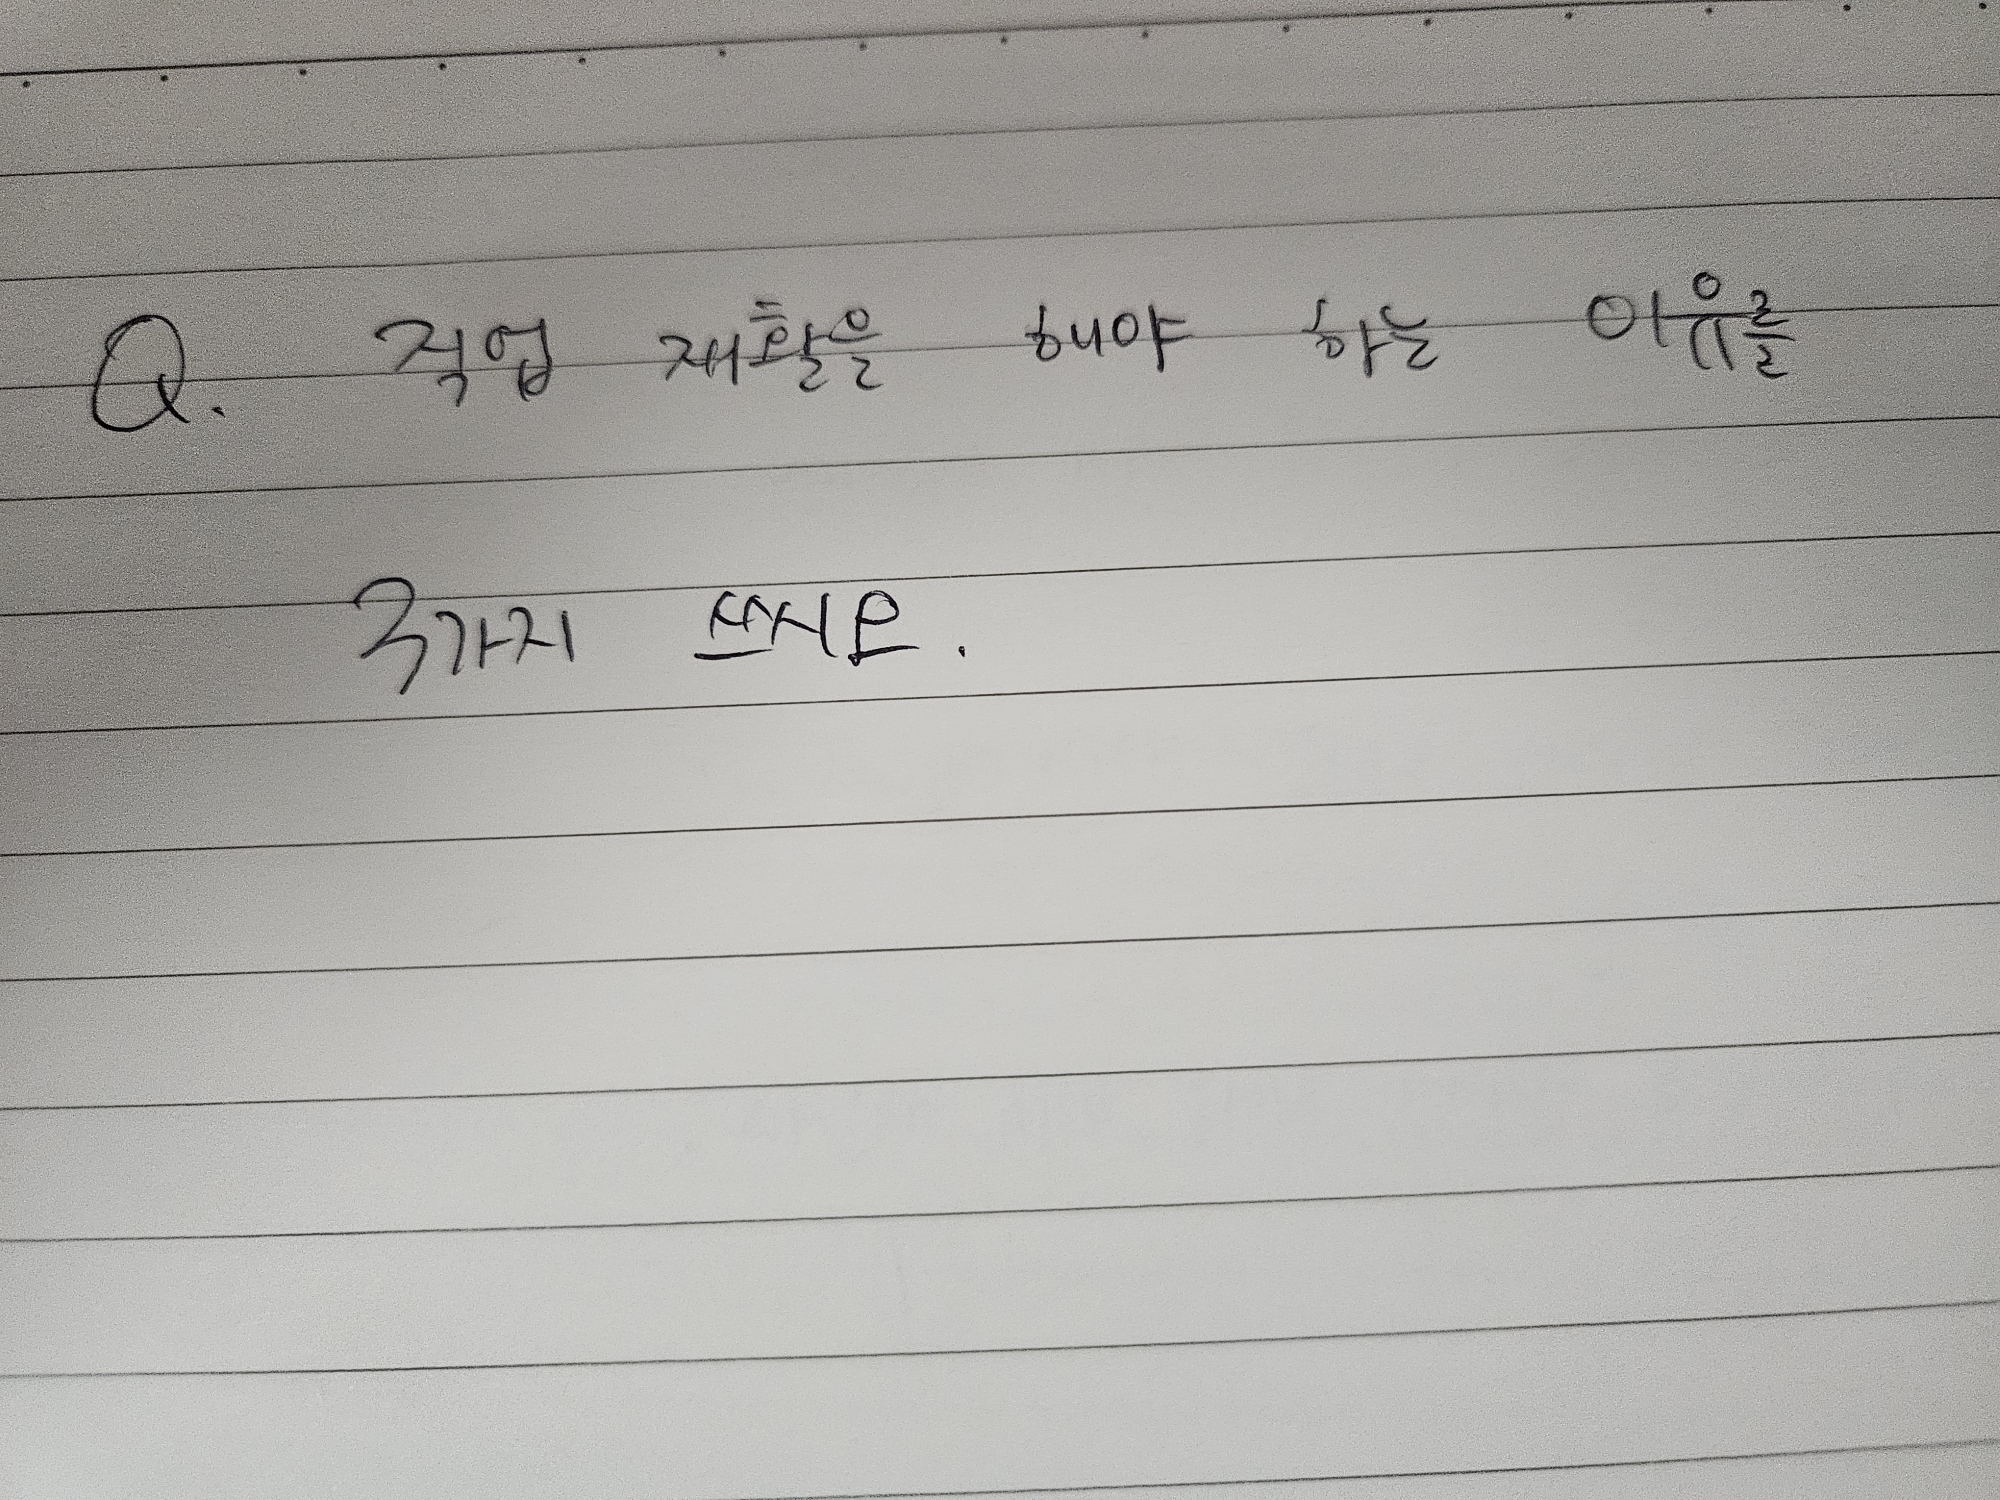 Q. 직업 재활을 해야 하는 이유를
3가지 쓰시오.